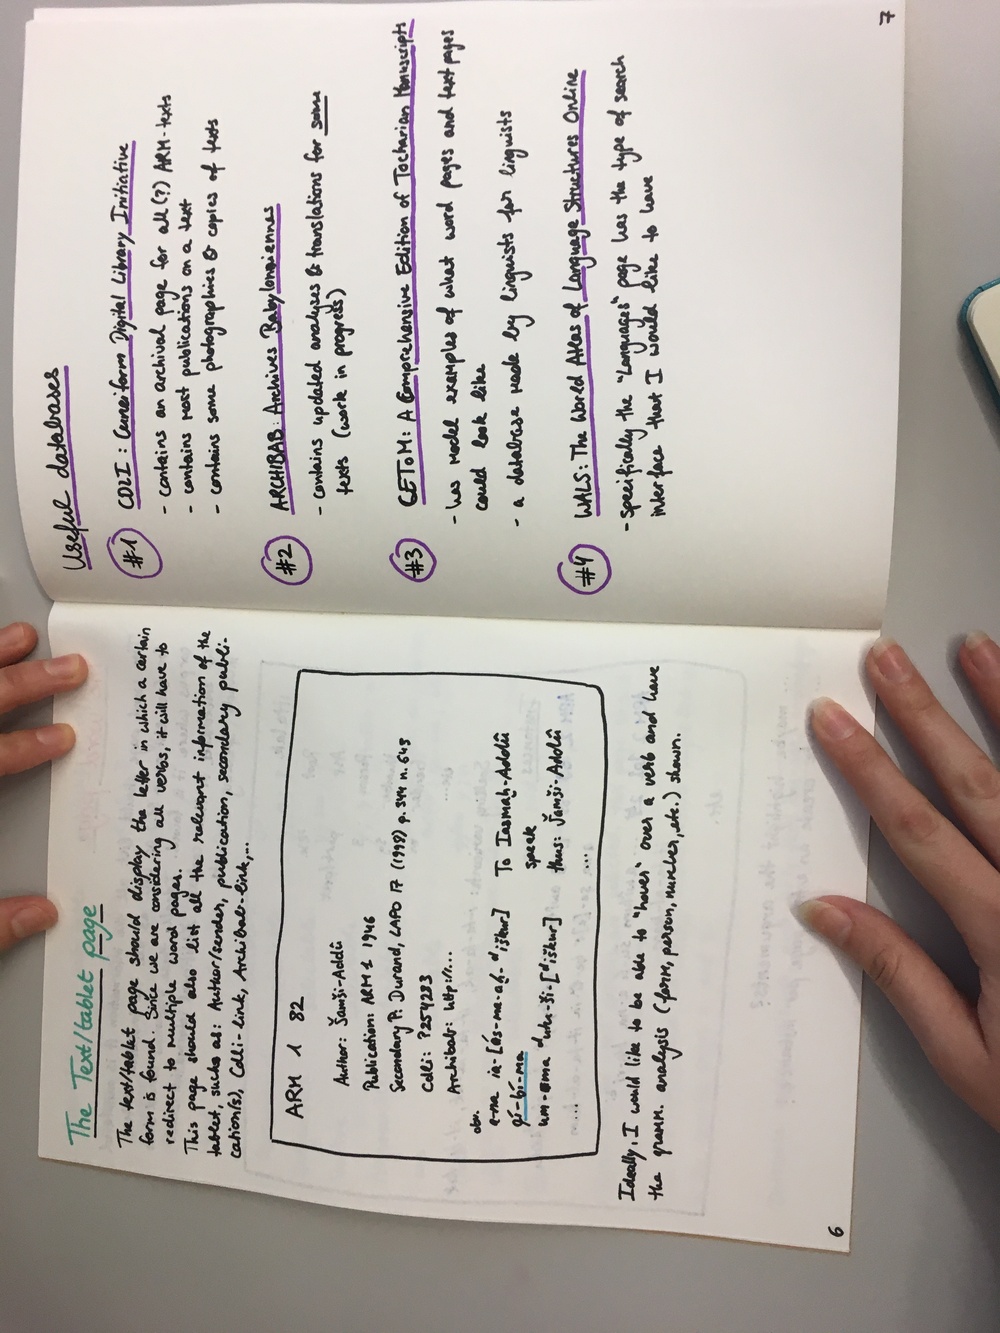 The Text/tablet page
The text/tablet page should display the letter in which a certain
form is found. Since we are considering all verbs, it will have to
redirect to multiple word pages.
This page should also list all the relevant information of the
tablet, such as: Author/sender, publication, secondary publi-
cation(s), Cdli-link, Archibab-link,...
ARM 1 82
Author: Šamši-Addû
Publication: ARM 1 1946
Secondary P: Durand, LAPO 17 (1998) p. 344 n. 645
Cdli: P254283
Archibab: http://...
obv.
a-na ia-[ás-ma-aḫ-ᵈiškur] To Iasmaḫ-Addû
qí-bí-ma speak
um-ma ᵈutu-ši-[ᵈiškur] thus: Šamši-Addû
....
Ideally, I would like to be able to "hover" over a verb and have
the gramm. analysis (form, person, number, etc.) shown.
6
Useful databases
#1 CDLI: Cuneiform Digital Library Initiative
- contains an archival page for all(?) ARM-texts
- contains most publications on a text
- contains some photographies & copies of texts
#2 ARCHIBAB: Archives Babyloniennes
- contains updated analyses & translations for some
texts (work in progress)
#3 CEToM: A Comprehensive Edition of Tocharian Manuscripts
- has model examples of what word pages and text pages
could look like
- a database made by linguists for linguists
#4 WALS: The World Atlas of Language Structures Online
- Specifically the "Languages" page has the type of search
interface that I would like to have
7